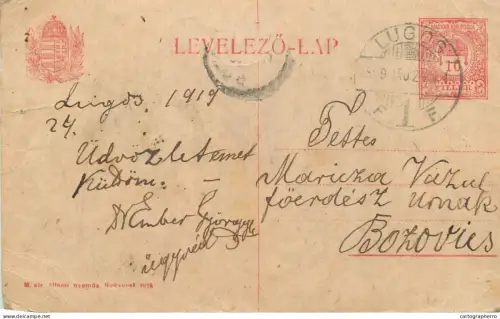 LEVELEZŐ-LAP
LUGOS
10
Lugos 1919
24.
Üdvözletemet
Küldöm. —
Ember György
ügyvéd
Tettes
Maricza Vazul
főerdész Urnak
Bozovics
M. kir. állami nyomda. Budapest 1918
www.delcampe.net
cartographerro